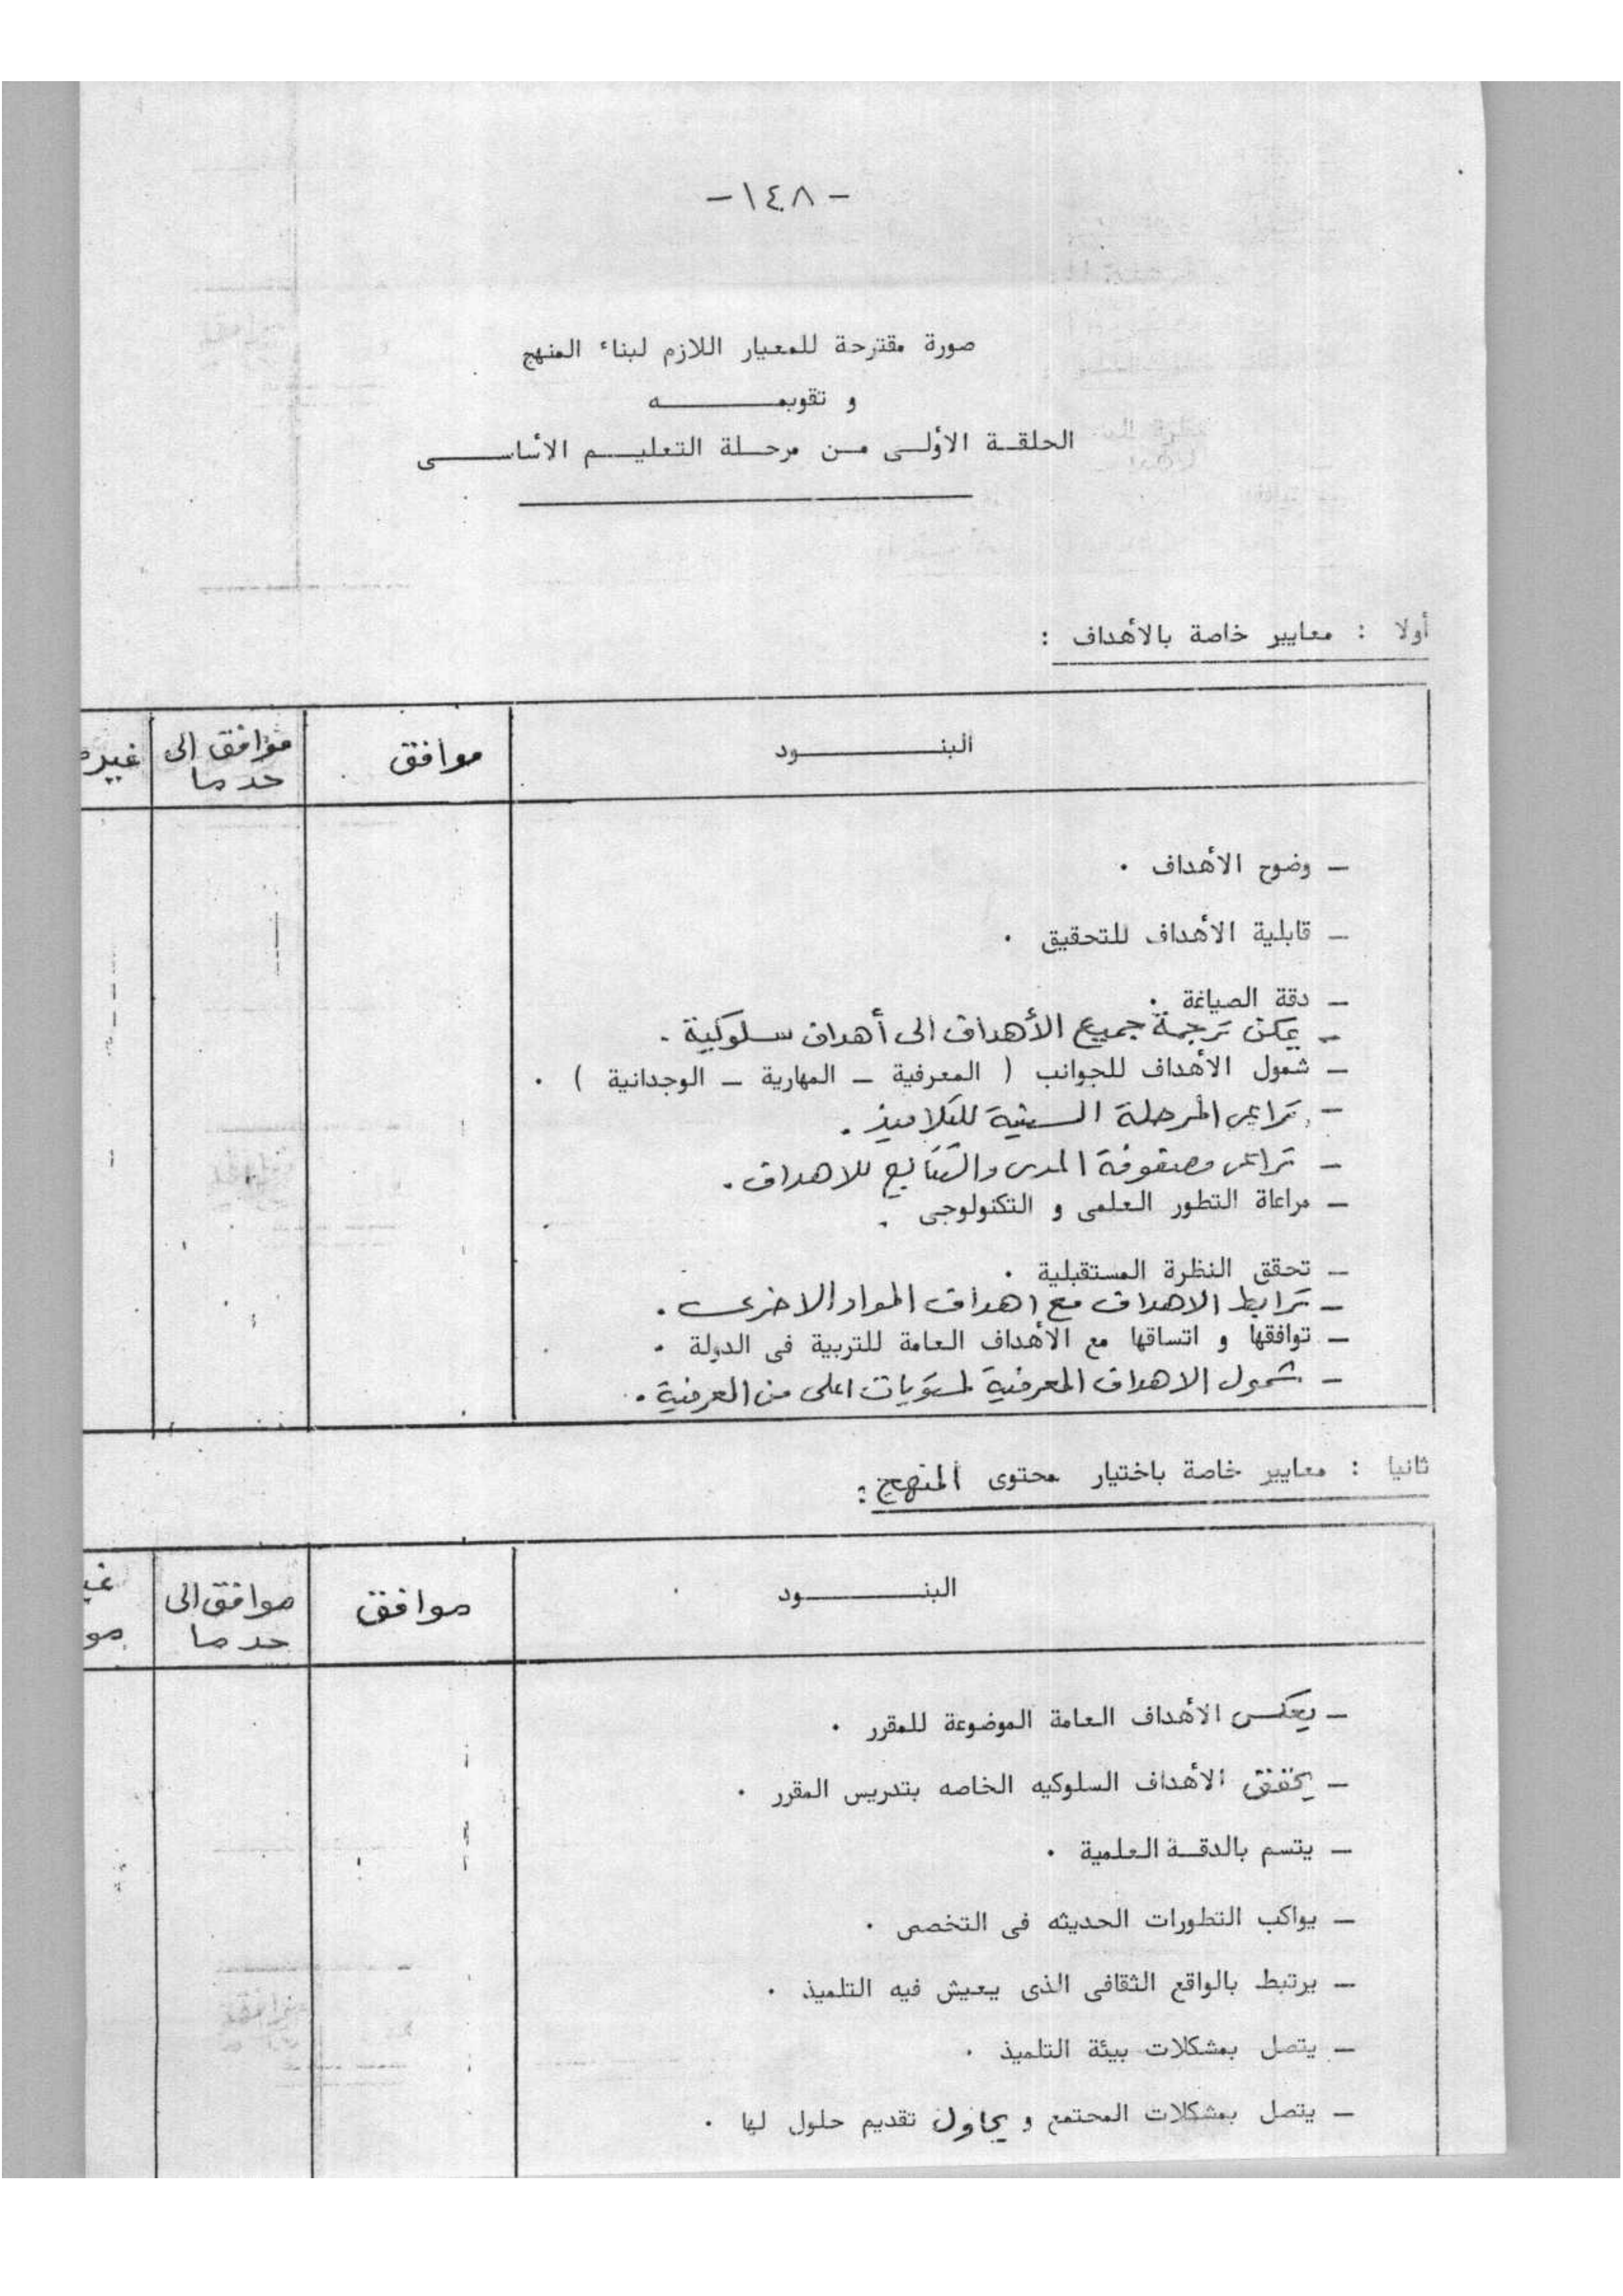 -١٤٨-
صورة مقترحة للمعيار اللازم لبناء المنهج
و تقويمه
الحلقة الأولى من مرحلة التعليم الأساسى
أولا : معايير خاصة بالأهداف :
البنود موافق موافق الى حد ما غير
- وضوح الأهداف .
- قابلية الأهداف للتحقيق .
- دقة الصياغة .
- يمكن ترجمة جميع الأهداف الى أهداف سلوكية .
- شمول الأهداف للجوانب ( المعرفية - المهارية - الوجدانية ) .
- تراعى المرحلة السنية للتلاميذ .
- تراعى مصفوفة المدى والتتابع للاهداف .
- مراعاة التطور العلمى و التكنولوجى .
- تحقق النظرة المستقبلية .
- ترابط الاهداف مع اهداف المواد الاخرى .
- توافقها و اتساقها مع الأهداف العامة للتربية فى الدولة .
- شمول الاهداف المعرفية لمستويات اعلى من المعرفية .
ثانيا : معايير خاصة باختيار محتوى المنهج :
البنود موافق موافق الى حد ما غير مو
- يعكس الأهداف العامة الموضوعة للمقرر .
- يحقق الأهداف السلوكيه الخاصه بتدريس المقرر .
- يتسم بالدقة العلمية .
- يواكب التطورات الحديثه فى التخصص .
- يرتبط بالواقع الثقافى الذى يعيش فيه التلميذ .
- يتصل بمشكلات بيئة التلميذ .
- يتصل بمشكلات المجتمع و يحاول تقديم حلول لها .